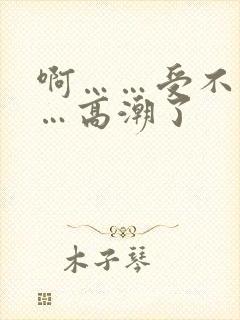 啊……受不
…高潮了
木子琴